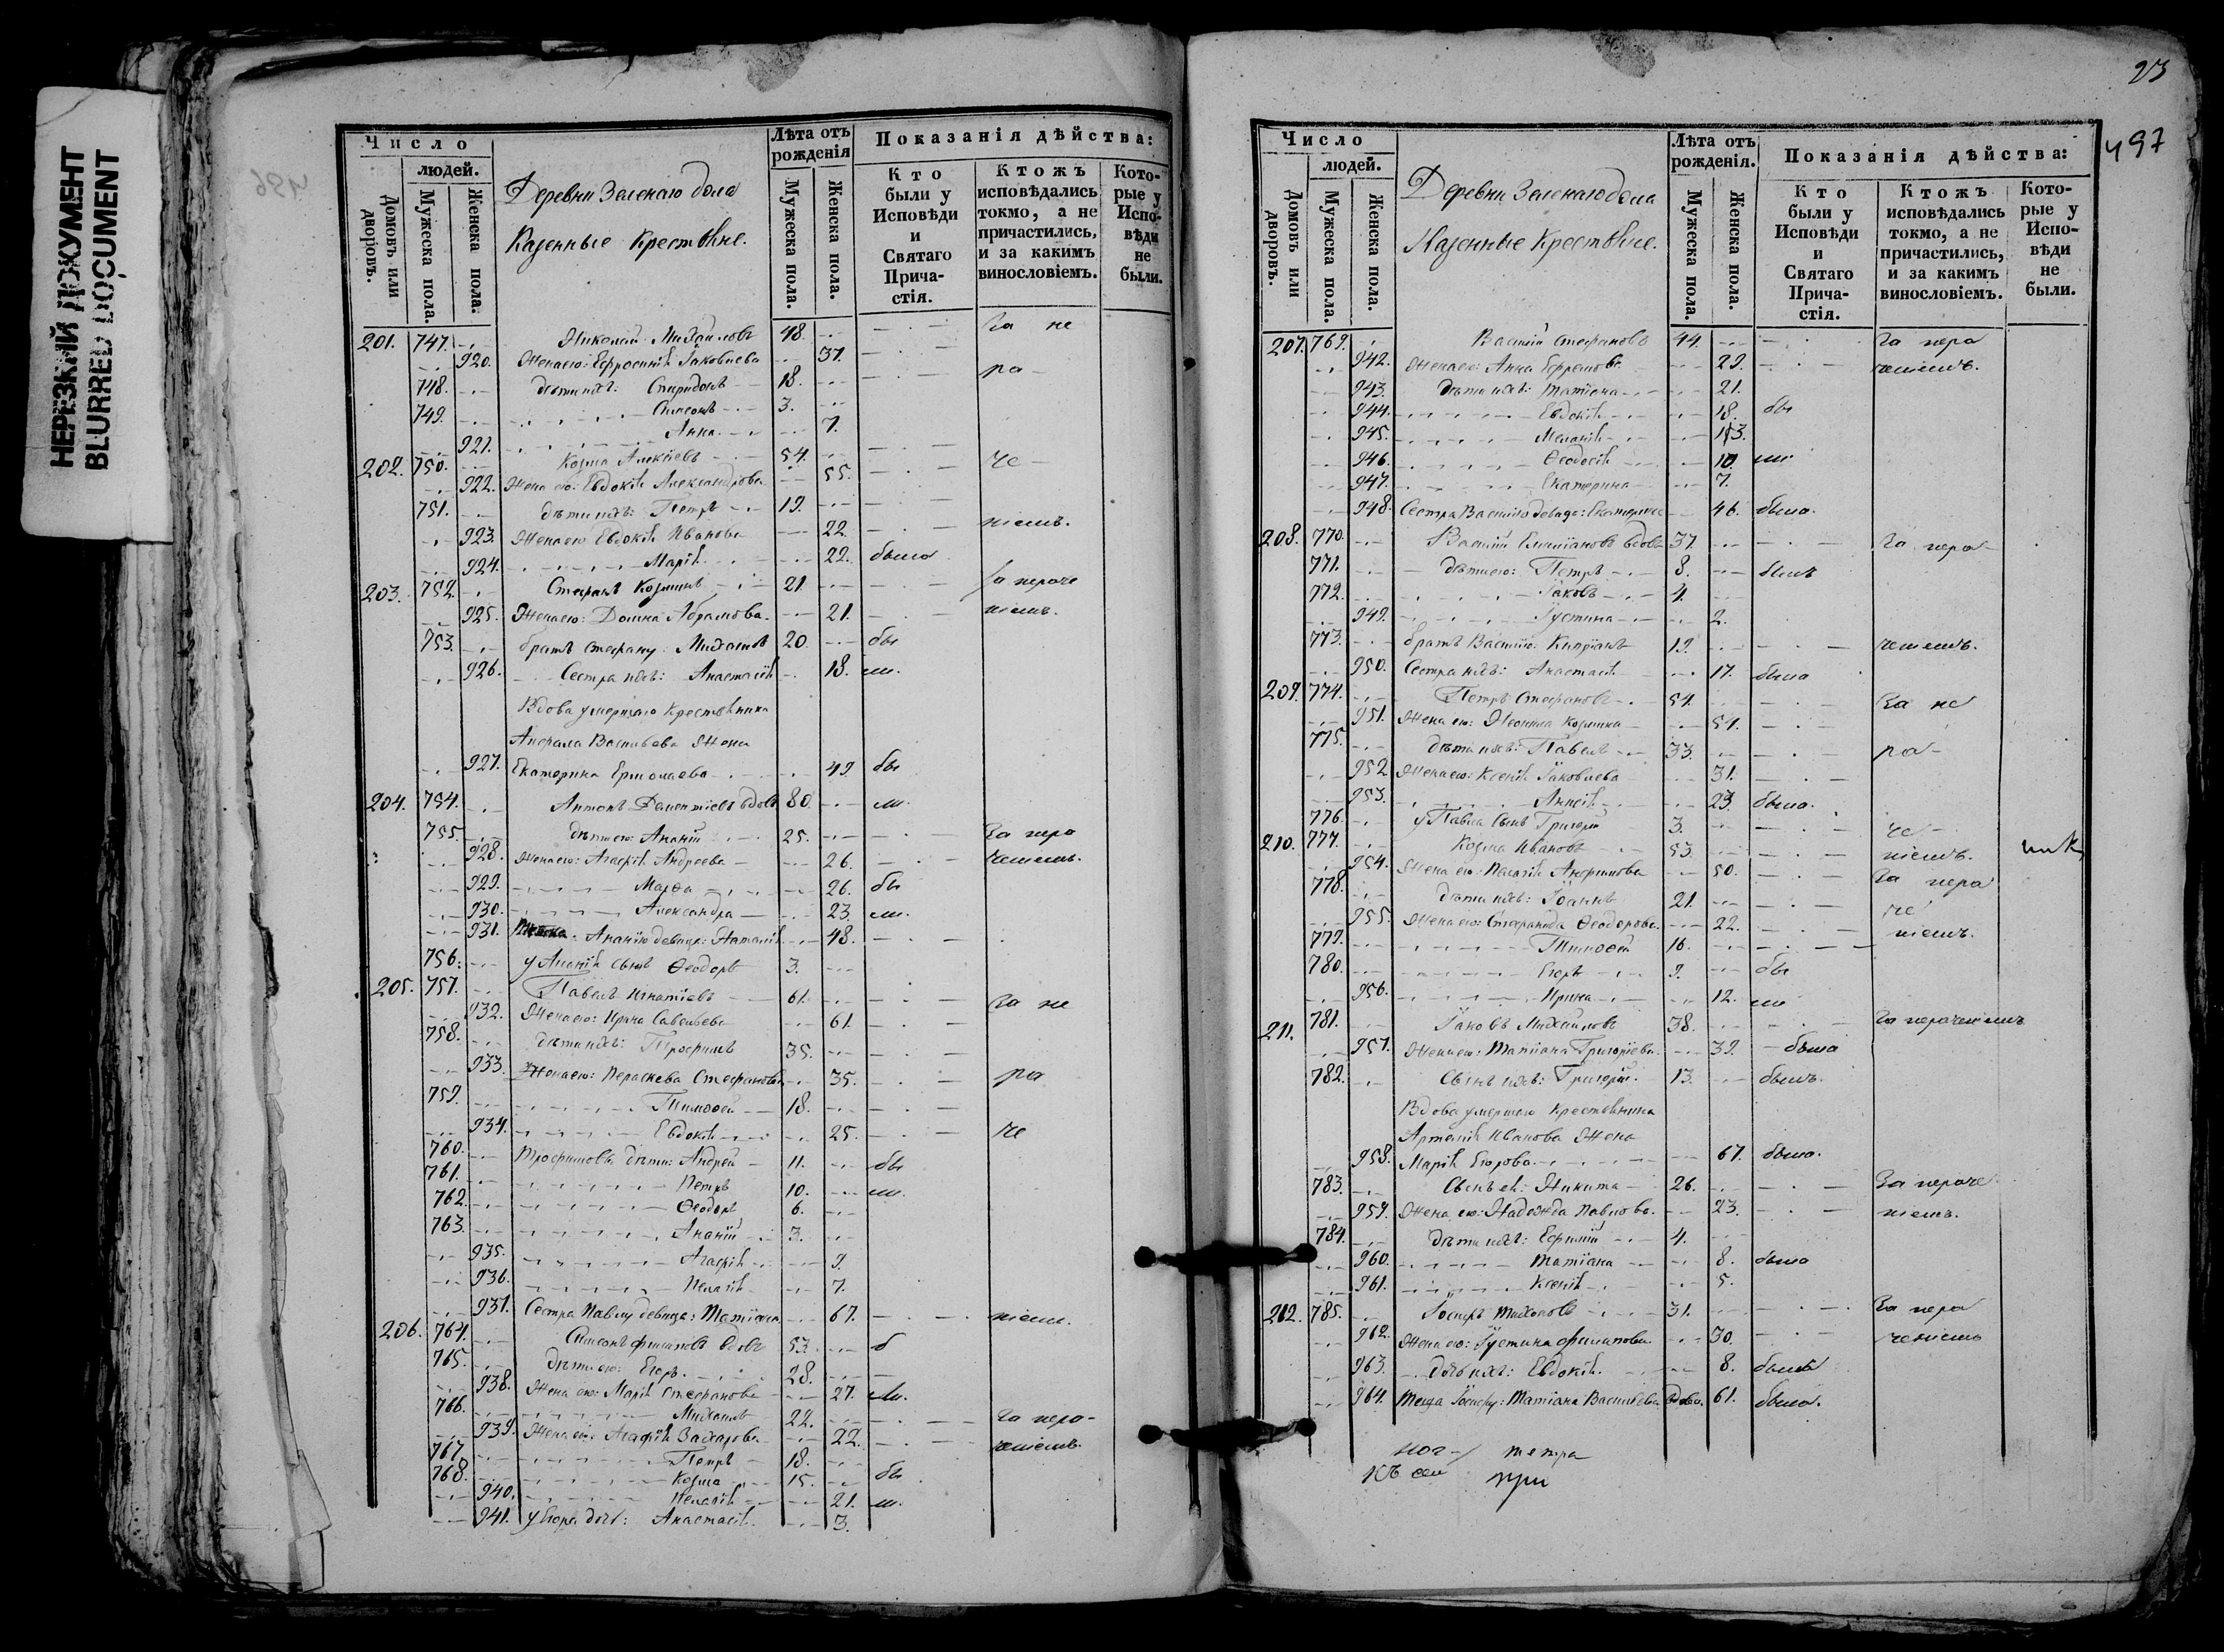 НЕРЕЗКИЙ ДОКУМЕНТ
BLURRED DOCUMENT
496
Число
людей.
Домовъ или дворовъ.
Мужеска пола.
Женска пола.
Деревни Зеленаго дола
Казенные Крестьяне.
Лѣта отъ рожденія
Мужеска пола.
Женска пола.
Показанія дѣйства:
Кто были у Исповѣди и Святаго Прича-стія.
Ктожъ исповѣдались токмо, а не причастились, и за какимъ винословіемъ.
Кото-рые у Испо-вѣди не были.
201. 747. Николай Михайловъ 48. За не
920. Жена его: Ефросинія Іаковлева 37.
748. дѣти ихъ: Спиридонъ 18. ра
749. Симеонъ 3.
921. Анна 7.
202. 750. Козма Алексіевъ 54. че
922. Жена его: Евдокія Александрова 55.
751. дѣти ихъ: Петръ 19.
923. Жена его Евдокія Иванова 22 ніемъ.
924. Марія 22. была
203. 752. Стефанъ Козминъ 21 За нераче
925. Жена его: Домна Абрамова 21. ніемъ.
753. братъ Стефану: Михаилъ 20 бы
926. Сестра ихъ: Анастасія 18. ли.
Вдова умершаго Крестьянина
Васильева Жена
927. Екатерина Ермолаева 49 бы
204. 754. Антонъ вдовъ 80. ли.
755. дѣти его: Ананій 25. За нера
928. Жена его: Агафія Андреева 26. ченіемъ.
929. Марѳа 26. бы
930. Александра 23. ли.
931. Ананію девица: Наталія 48.
756. у Ананія сынъ Ѳеодоръ 3.
205. 757. Павелъ Игнатіевъ 61. За не
932. Жена его: Ирина Савельева 61.
758. дѣти ихъ: Трофимъ 35.
933. Жена его: Параскева Стефанова 35. ра
759. Тимоѳей 18.
934. Евдокія 25. че
760. Трофимовы дѣти: Андрей 11. бы
761. Петръ 10. ли.
762. Ѳеодоръ 6.
763. Ананій 3.
935. Агафія 9.
936. Пелагія 7.
937. Сестра Павлу девица: Матіяна 67. ніемъ.
206. 764. Симеонъ Филиповъ вдовъ 53. б
765. дѣти его: Егоръ 28.
938. Жена его: Марія Стефанова 27. ли.
766. Михаилъ 22. За нера-
939. Жена его: Агафія Захарова 22. ченіемъ.
767. Петръ 18.
768. Козма 15. бы
940. Пелагія 21. ли.
941. у Егора дочь: Анастасія 3.
23
497
Число
людей.
Домовъ или дворовъ.
Мужеска пола.
Женска пола.
Деревни Зеленаго дола
Казенные Крестьяне.
Лѣта отъ рожденія.
Мужеска пола.
Женска пола.
Показанія дѣйства:
Кто были у Исповѣди и Святаго Прича-стія.
Ктожъ исповѣдались токмо, а не причастились, и за какимъ винословіемъ.
Кото-рые у Испо-вѣди не были.
207. 769. Василій Стефановъ 44. За нера
942. Жена его: Анна Ефремова 29. ченіемъ.
943. дѣти ихъ: Татіана 21.
944. Евдокія 18. бы
945. Меланія 13.
946. Ѳеодосія 10. ли
947. Екатерина 7.
948. Сестра Василію девица: Екатерина 46. была.
208. 770. Василій Емиліановъ вдовъ 37. За нера
771. дѣти его: Петръ 8. былъ
772. Іаковъ 4.
949. Іустина 2.
773. братъ Василію: Кипріанъ 19. ченіемъ.
950. Сестра ихъ: Анастасія 17. была
209. 774. Петръ Стефановъ 54. За не
951. Жена его: Козмина 54.
775. дѣти ихъ: Павелъ 33. ра
952 Жена его: Ксенія Іаковлева 31.
953. 23. была.
776. у Павла сынъ Григорій 3. че
210. 777. Козма Ивановъ 53. ніемъ.
954. Жена его: Пелагія 50. За нера
778. дѣти ихъ: Іоаннъ 21. че
955. Жена его: Стефанида Ѳеодорова 22. ніемъ.
779. Тимоѳей 16.
780. Егоръ 9. бы
956. Ирина 12. ли
211. 781. Іаковъ Михайловъ 38. За нераченіемъ
957. Жена его: Татіана Григоріева 39. была
782. Сынъ ихъ: Григорій 13. былъ.
Вдова умершаго Крестьянина
Артемія Иванова Жена
958. Марія Егорова 67. была.
783. Сынъ ея: Никита 26. За нераче
959. Жена его: Надежда Павлова 23. ніемъ.
784. дѣти ихъ: Ефимій 4.
960. Татіана 8. была
961. Ксенія 5.
212. 785. Іосифъ Тихоновъ 31. За нера
962. Жена его: Іустина Филипова 30. ченіемъ
963. дочь ихъ: Евдокія 8. была
964. Теща Іосифу: Татіана Васильева вдова. 61. была.
при